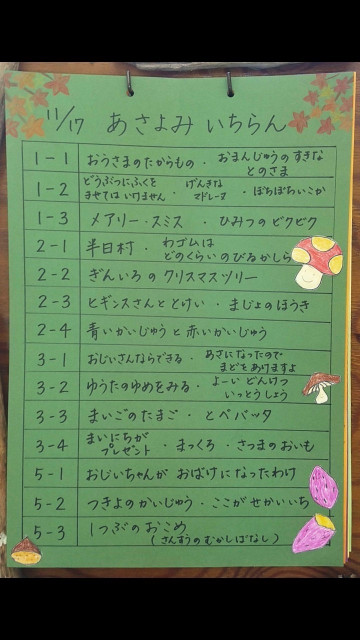 11/17 あさよみ いちらん
1-1 おうさまのたからもの・おまんじゅうのすきな
とのさま
1-2 どうぶつにふくを
きせてはいけません・げんきな
マドレーヌ・ぼちぼちいこか
1-3 メアリー・スミス・ひみつのビクビク
2-1 半日村・わゴムは
どのくらいのびるかしら
2-2 ぎんいろのクリスマスツリー
2-3 ヒギンスさんととけい・まじょのほうき
2-4 青いかいじゅうと赤いかいじゅう
3-1 おじいさんならできる・あさになったので
まどをあけますよ
3-2 ゆうたのゆめをみる・よーいどんけつ
いっとうしょう
3-3 まいごのたまご・とべバッタ
3-4 まいにちが
プレゼント・まっくろ・さつまのおいも
5-1 おじいちゃんがおばけになったわけ
5-2 つきよのかいじゅう・ここがせかいいち
5-3 1つぶのおこめ
(さんすうのむかしばなし)